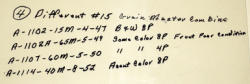 ④ Different #15 Grain Adaptor Combine
A-1102-15M-4-47 B&W 8P
A-1102A-65M-5-49 Some Color 8P Front Poor Condition
A-1107-60M-5-50 " " 4P
A-1114-40M-8-52 About Color 8P